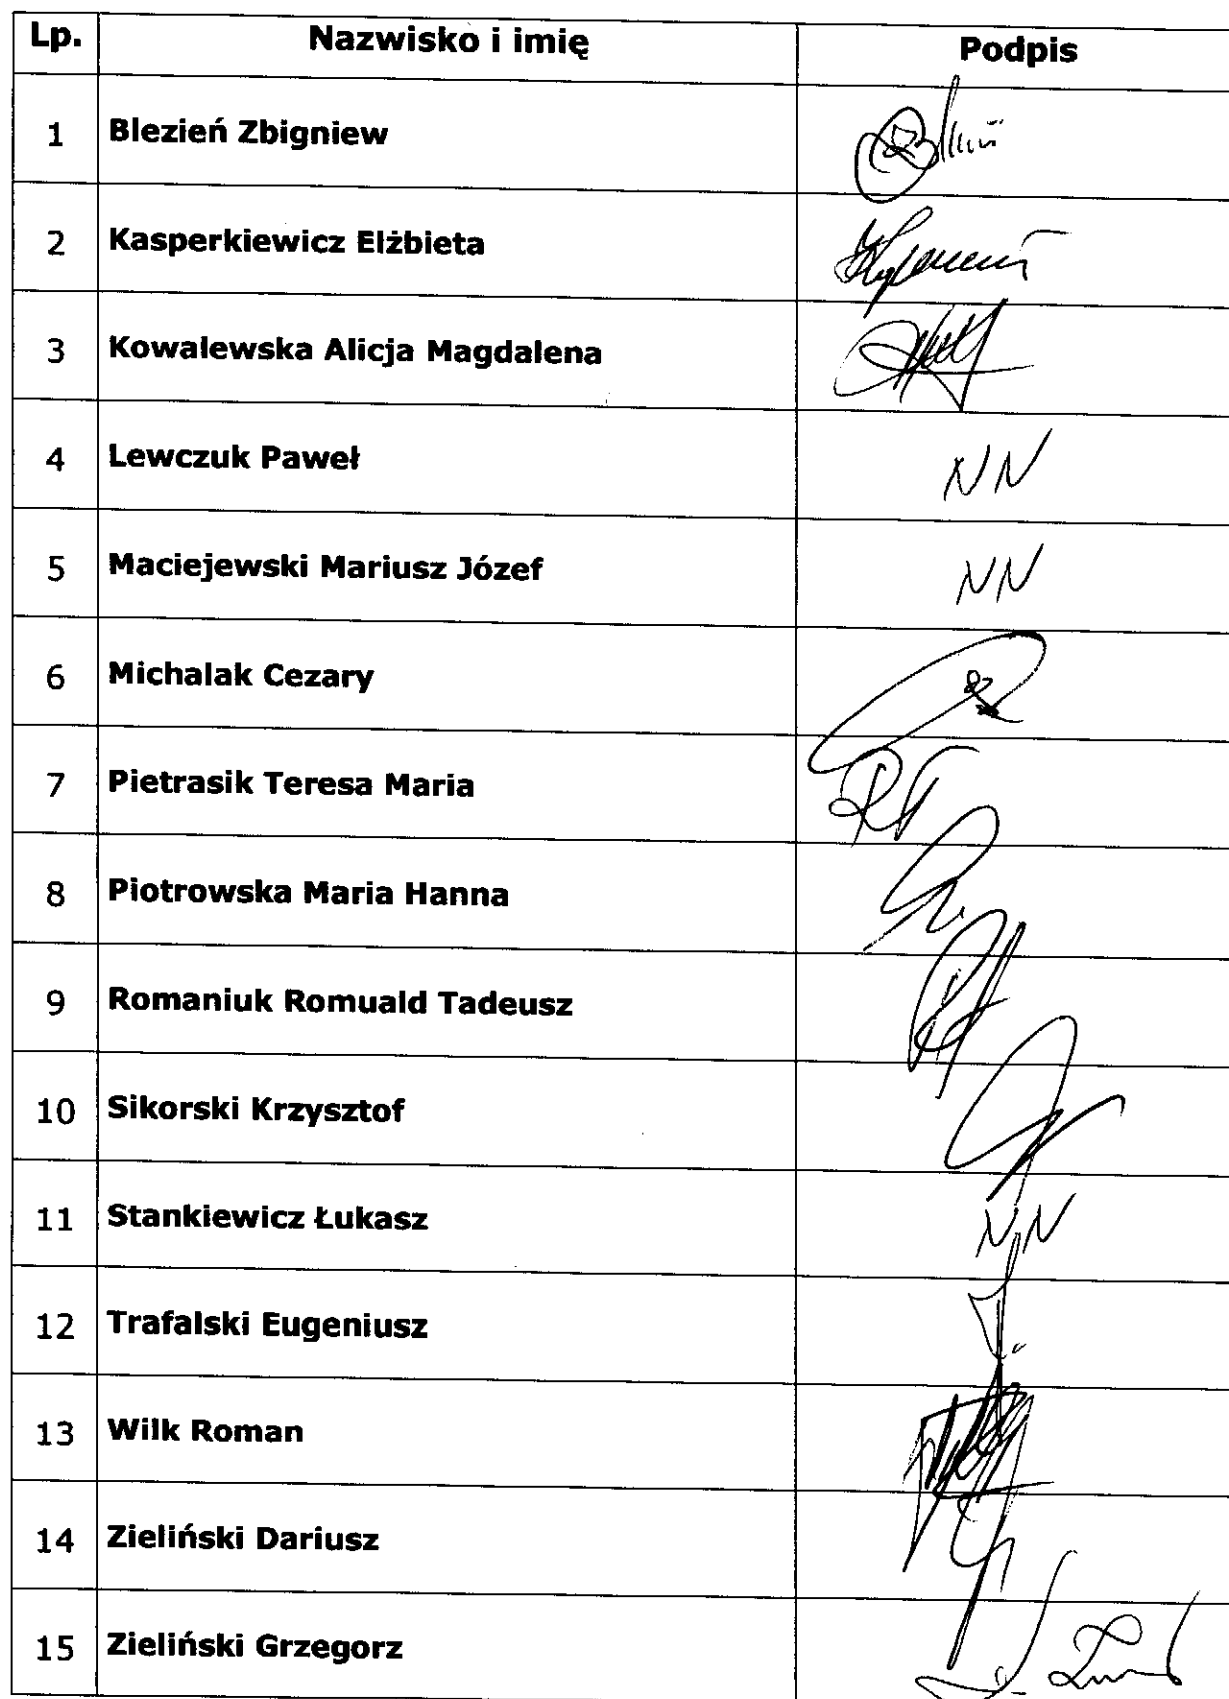 Lp. Nazwisko i imię Podpis
1 Blezień Zbigniew
2 Kasperkiewicz Elżbieta
3 Kowalewska Alicja Magdalena
4 Lewczuk Paweł NN
5 Maciejewski Mariusz Józef NN
6 Michalak Cezary
7 Pietrasik Teresa Maria
8 Piotrowska Maria Hanna
9 Romaniuk Romuald Tadeusz
10 Sikorski Krzysztof
11 Stankiewicz Łukasz NN
12 Trafalski Eugeniusz
13 Wilk Roman
14 Zieliński Dariusz
15 Zieliński Grzegorz